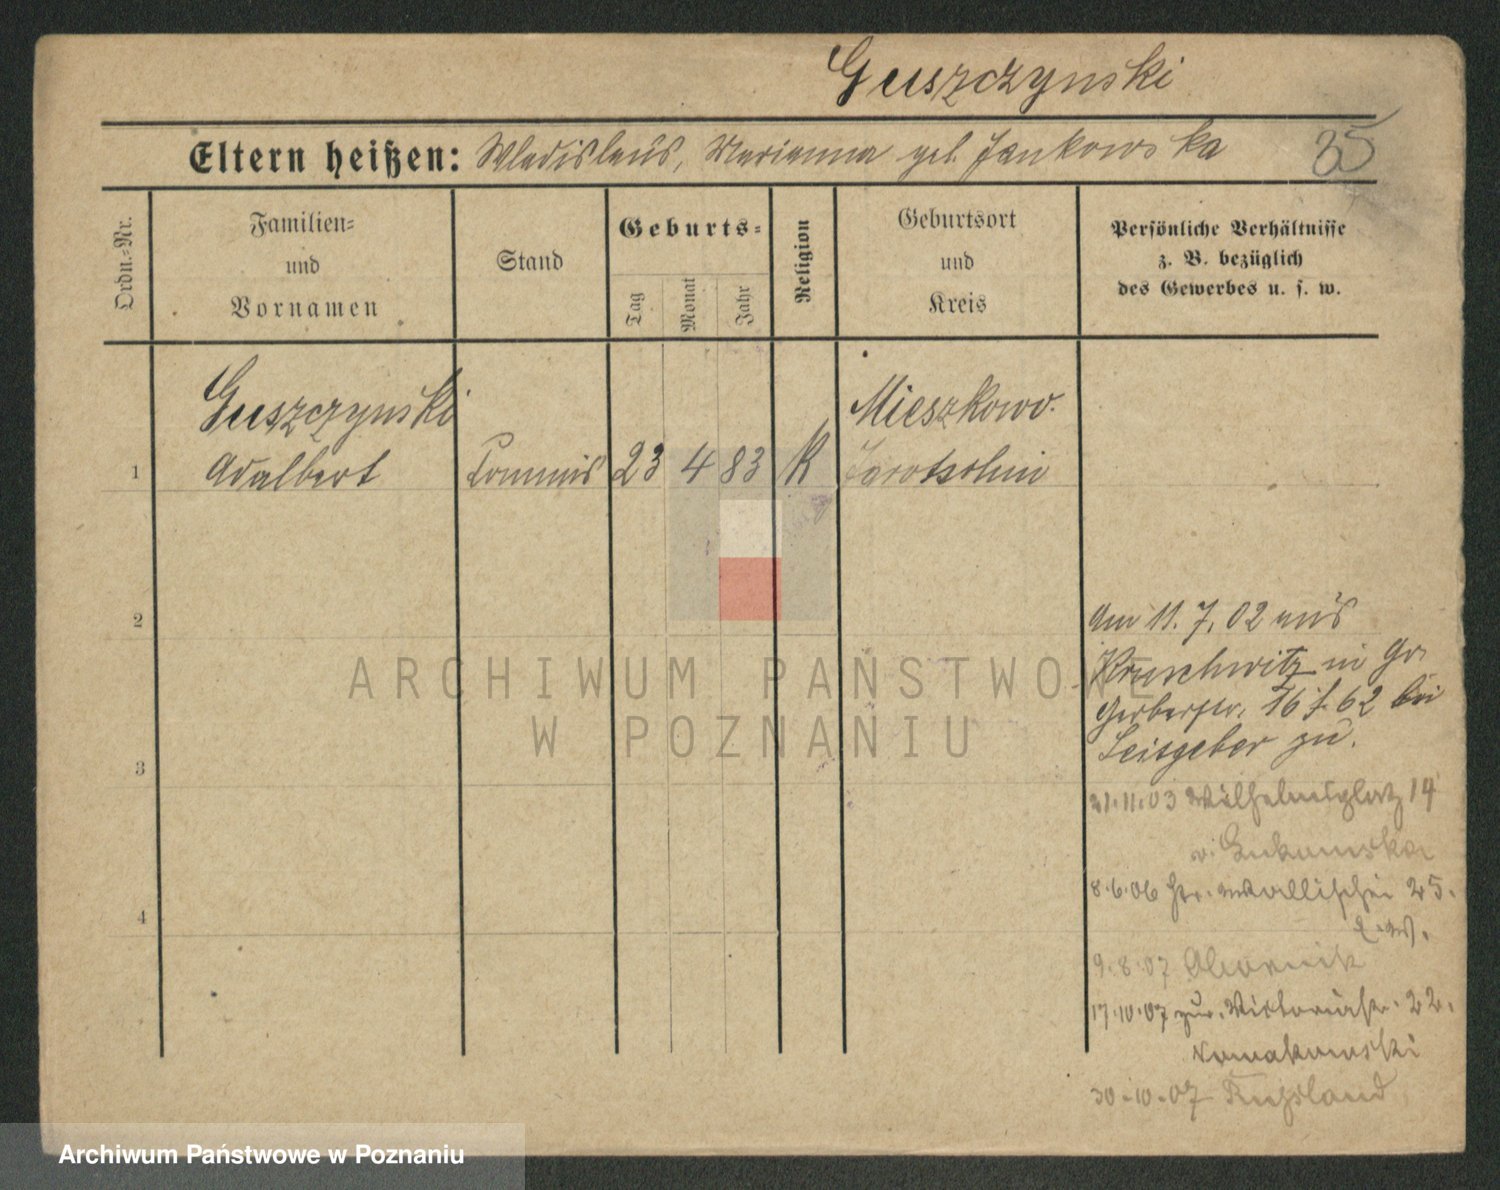 Guszczynski
Eltern heißen: Wladislaus, Marianna geb. Jankowska
35
Ordn.-Nr.
Familien-
und
Vornamen
Stand
Geburts-
Tag
Monat
Jahr
Religion
Geburtsort
und
Kreis
Persönliche Verhältnisse
z. B. bezüglich
des Gewerbes u. s. w.
Guszczynski
Adalbert
1
Commis
23 4 83
K
Mieszkowo.
Jarotschin
2
3
4
Am 11. 7. 02 aus
Kruschwitz in Gr.
Gerberstr. 16 f. 62 bei
Leitgeber zu.
21.11.03 Wilhelmsplatz 14
8.6.06 Wallischei 25.
9.8.07 Obornik
17.10.07 zur. Victoriastr. 22.
Nowakowski
30.10.07 Russland
ARCHIWUM PAŃSTWOWE
W POZNANIU
Archiwum Państwowe w Poznaniu